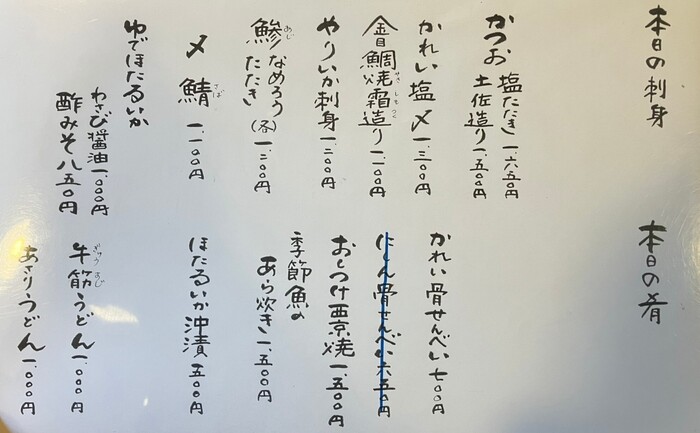 本日の刺身
かつお 塩たたき 一、六五〇円
土佐造り 一、五〇〇円
かれい塩〆 一、三〇〇円
金目鯛焼霜造り 一、一〇〇円
やりいか刺身 一、二〇〇円
鯵 なめろう
たたき（各）一、二〇〇円
〆鯖 一、一〇〇円
ゆでほたるいか
わさび醤油 一、〇〇〇円
酢みそ 八五〇円
本日の肴
かれい骨せんべい 七〇〇円
にしん骨せんべい 六五〇円
おしつけ西京焼 一、五〇〇円
季節魚の
あら炊き 一、五〇〇円
ほたるいか沖漬 五〇〇円
牛筋うどん 一、〇〇〇円
あさりうどん 一、〇〇〇円